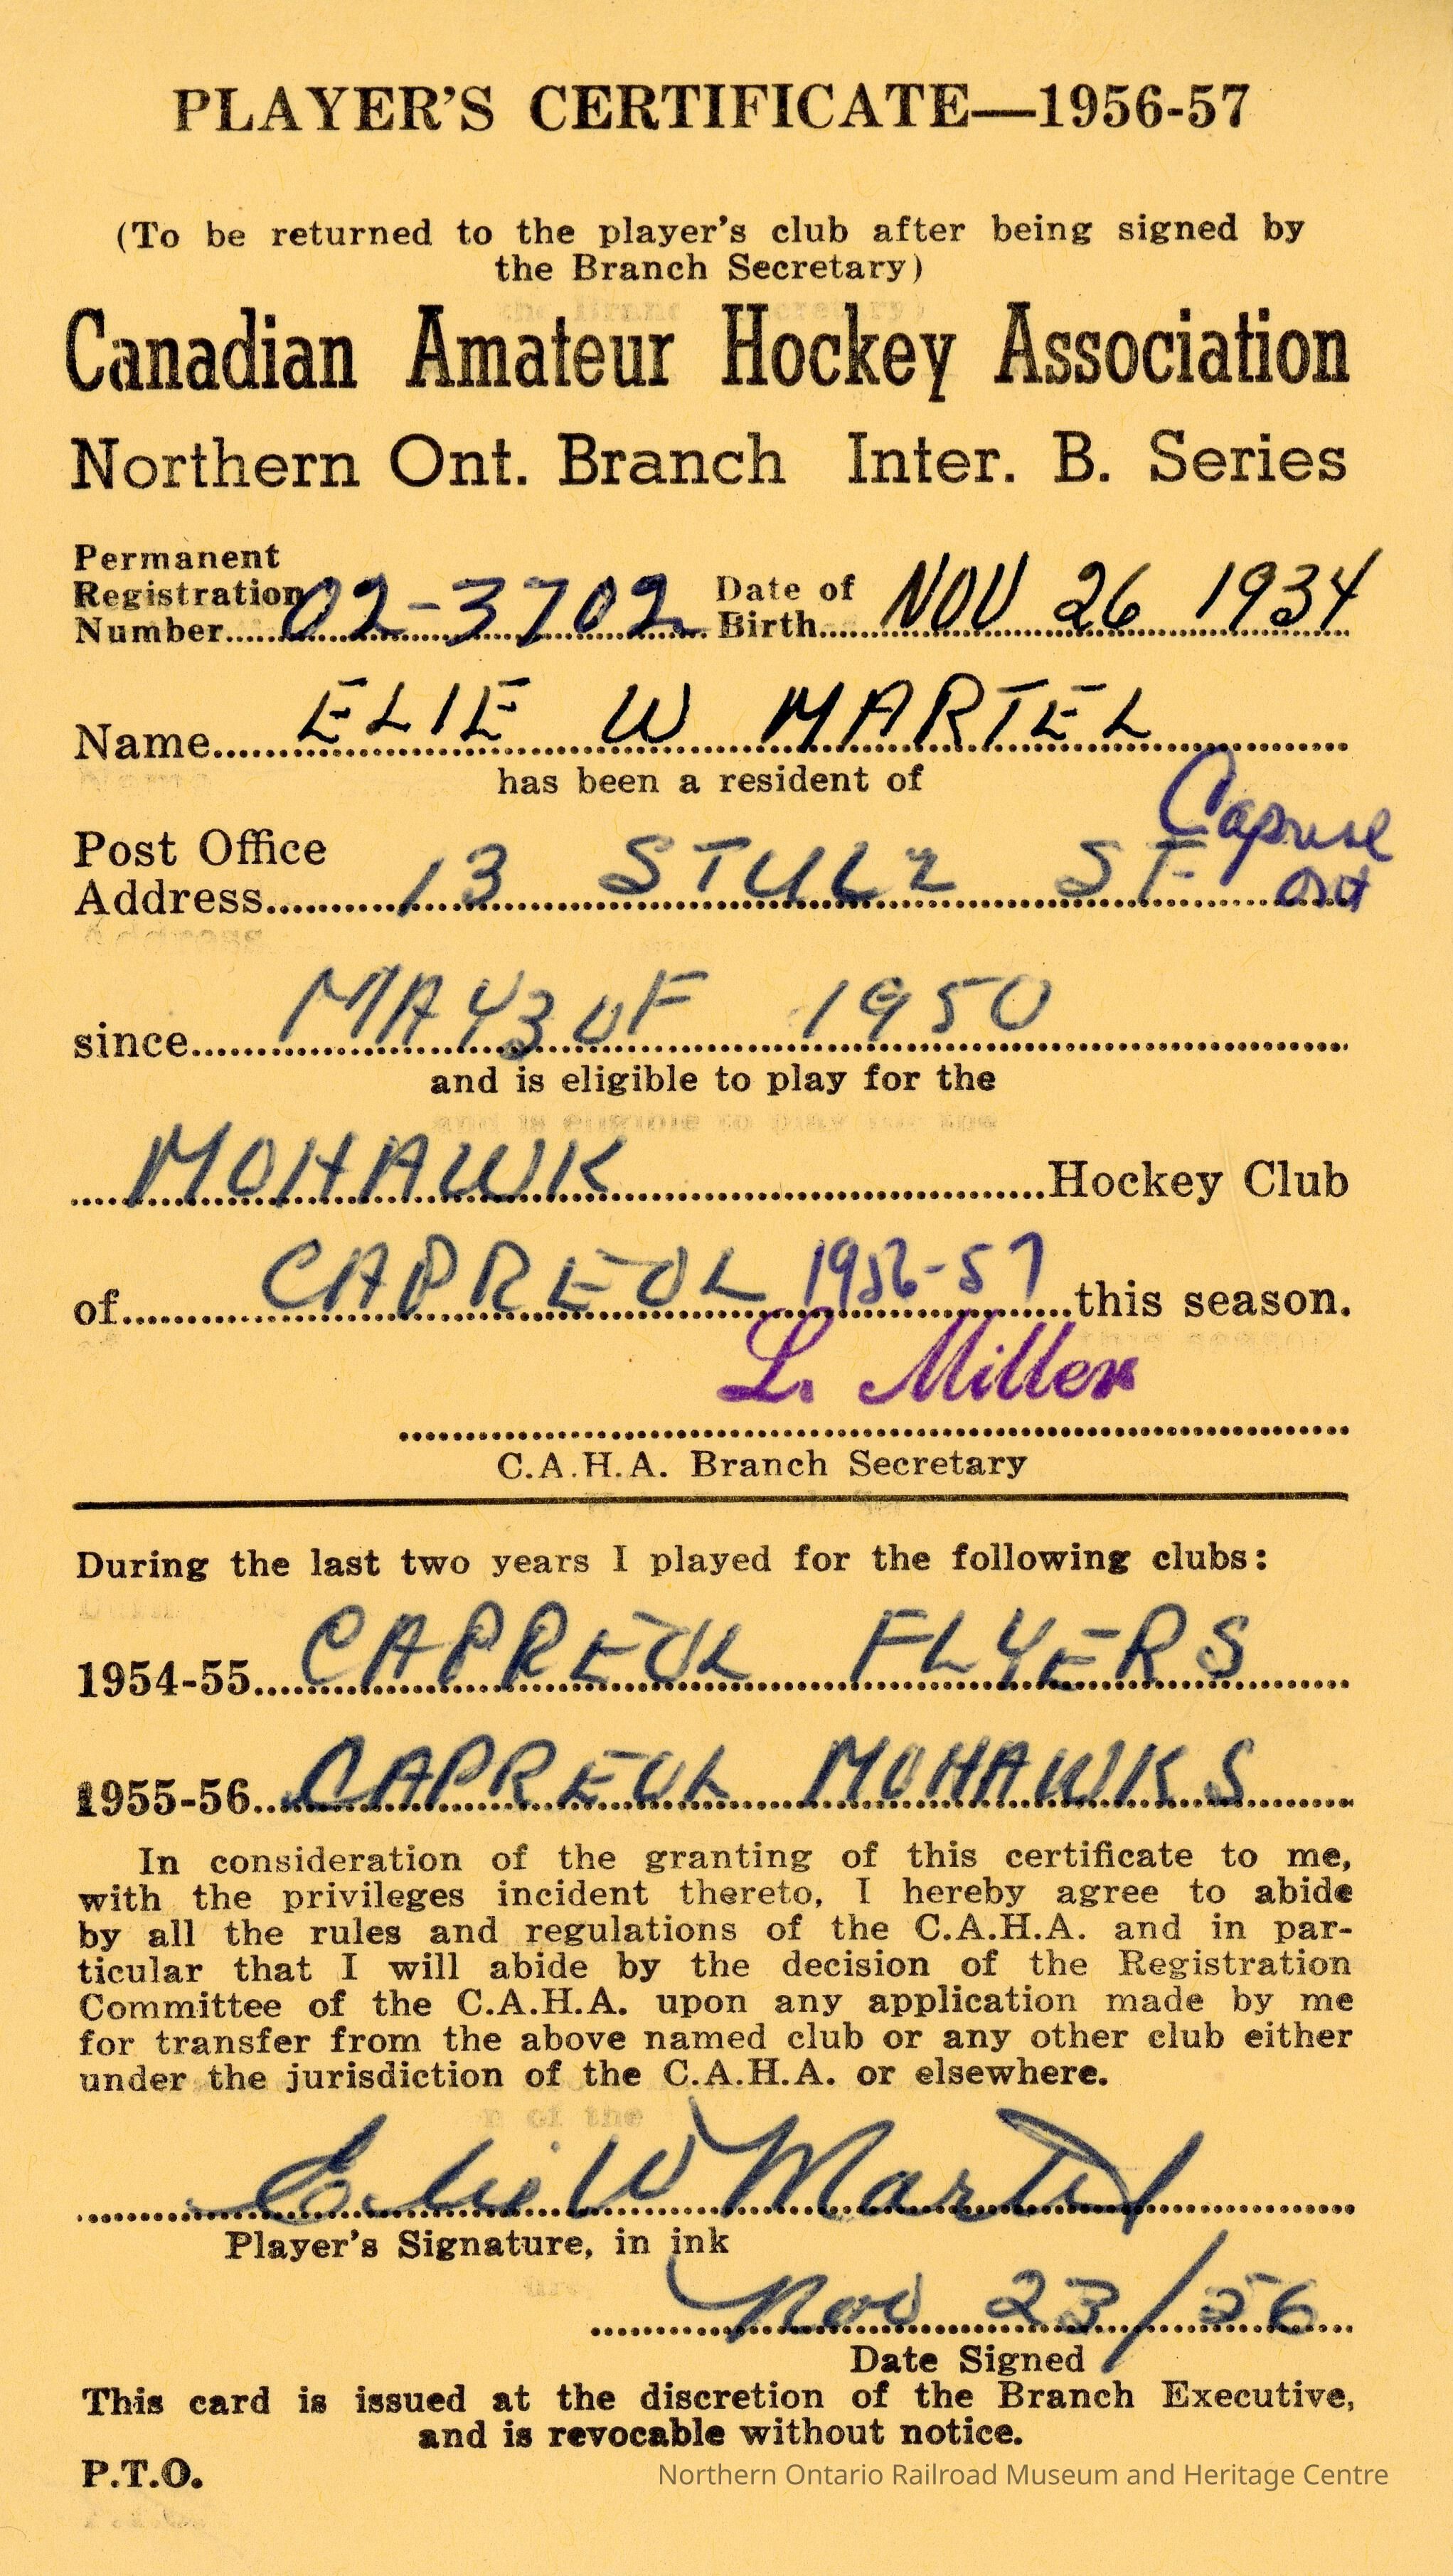 PLAYER'S CERTIFICATE—1956-57
(To be returned to the player's club after being signed by
the Branch Secretary)
Canadian Amateur Hockey Association
Northern Ont. Branch Inter. B. Series
Permanent
Registration
Number.....02-3702 Date of Birth.....NOV 26 1934
Name.....ELIE W MARTEL
has been a resident of
Post Office
Address.....13 STULL ST Capreol
Ont
since.....MAY 3 OF 1950
and is eligible to play for the
MOHAWK.....Hockey Club
of.....CAPREOL 1956-57.....this season.
L. Miller
C.A.H.A. Branch Secretary
During the last two years I played for the following clubs:
1954-55....CAPREOL FLYERS
1955-56..CAPREOL MOHAWKS
In consideration of the granting of this certificate to me,
with the privileges incident thereto, I hereby agree to abide
by all the rules and regulations of the C.A.H.A. and in par-
ticular that I will abide by the decision of the Registration
Committee of the C.A.H.A. upon any application made by me
for transfer from the above named club or any other club either
under the jurisdiction of the C.A.H.A. or elsewhere.
Elie W Martel
Player's Signature, in ink
Nov 23/56
Date Signed
This card is issued at the discretion of the Branch Executive,
and is revocable without notice.
P.T.O.
Northern Ontario Railroad Museum and Heritage Centre